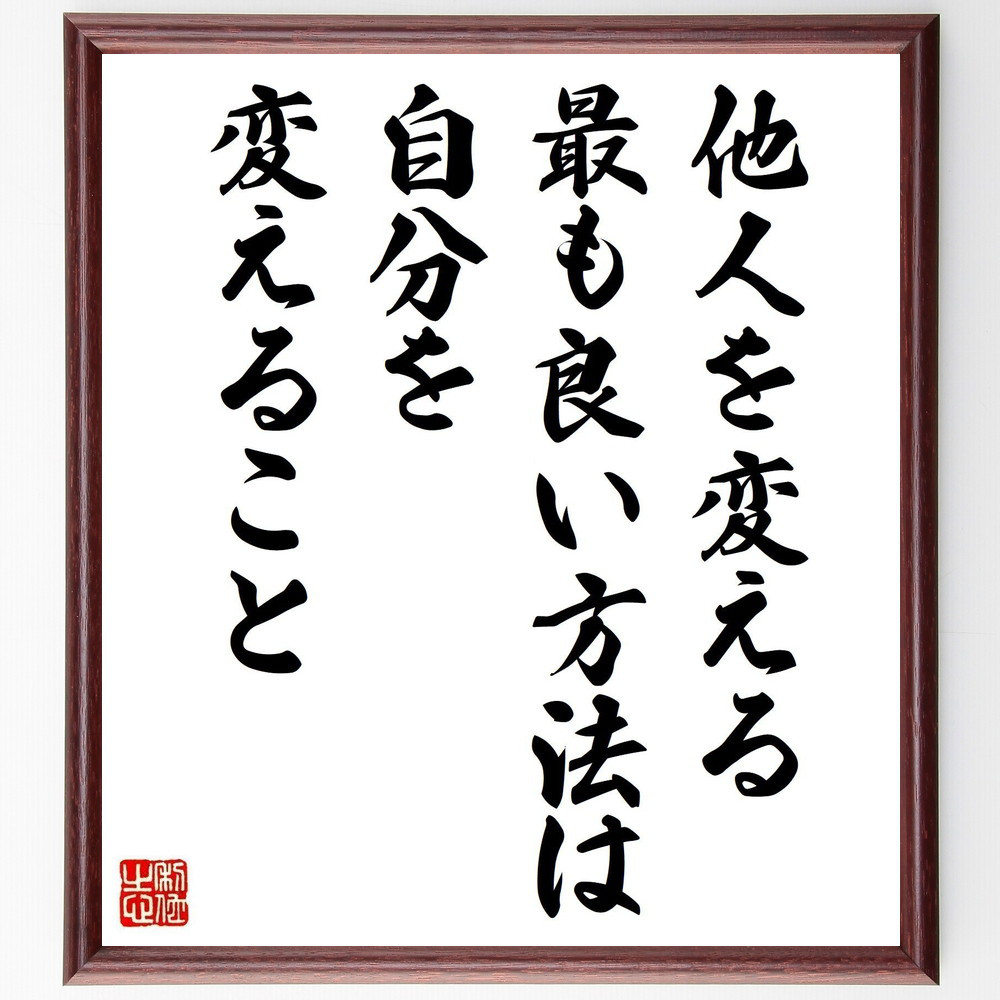 他人を変える
最も良い方法は
自分を
変えること